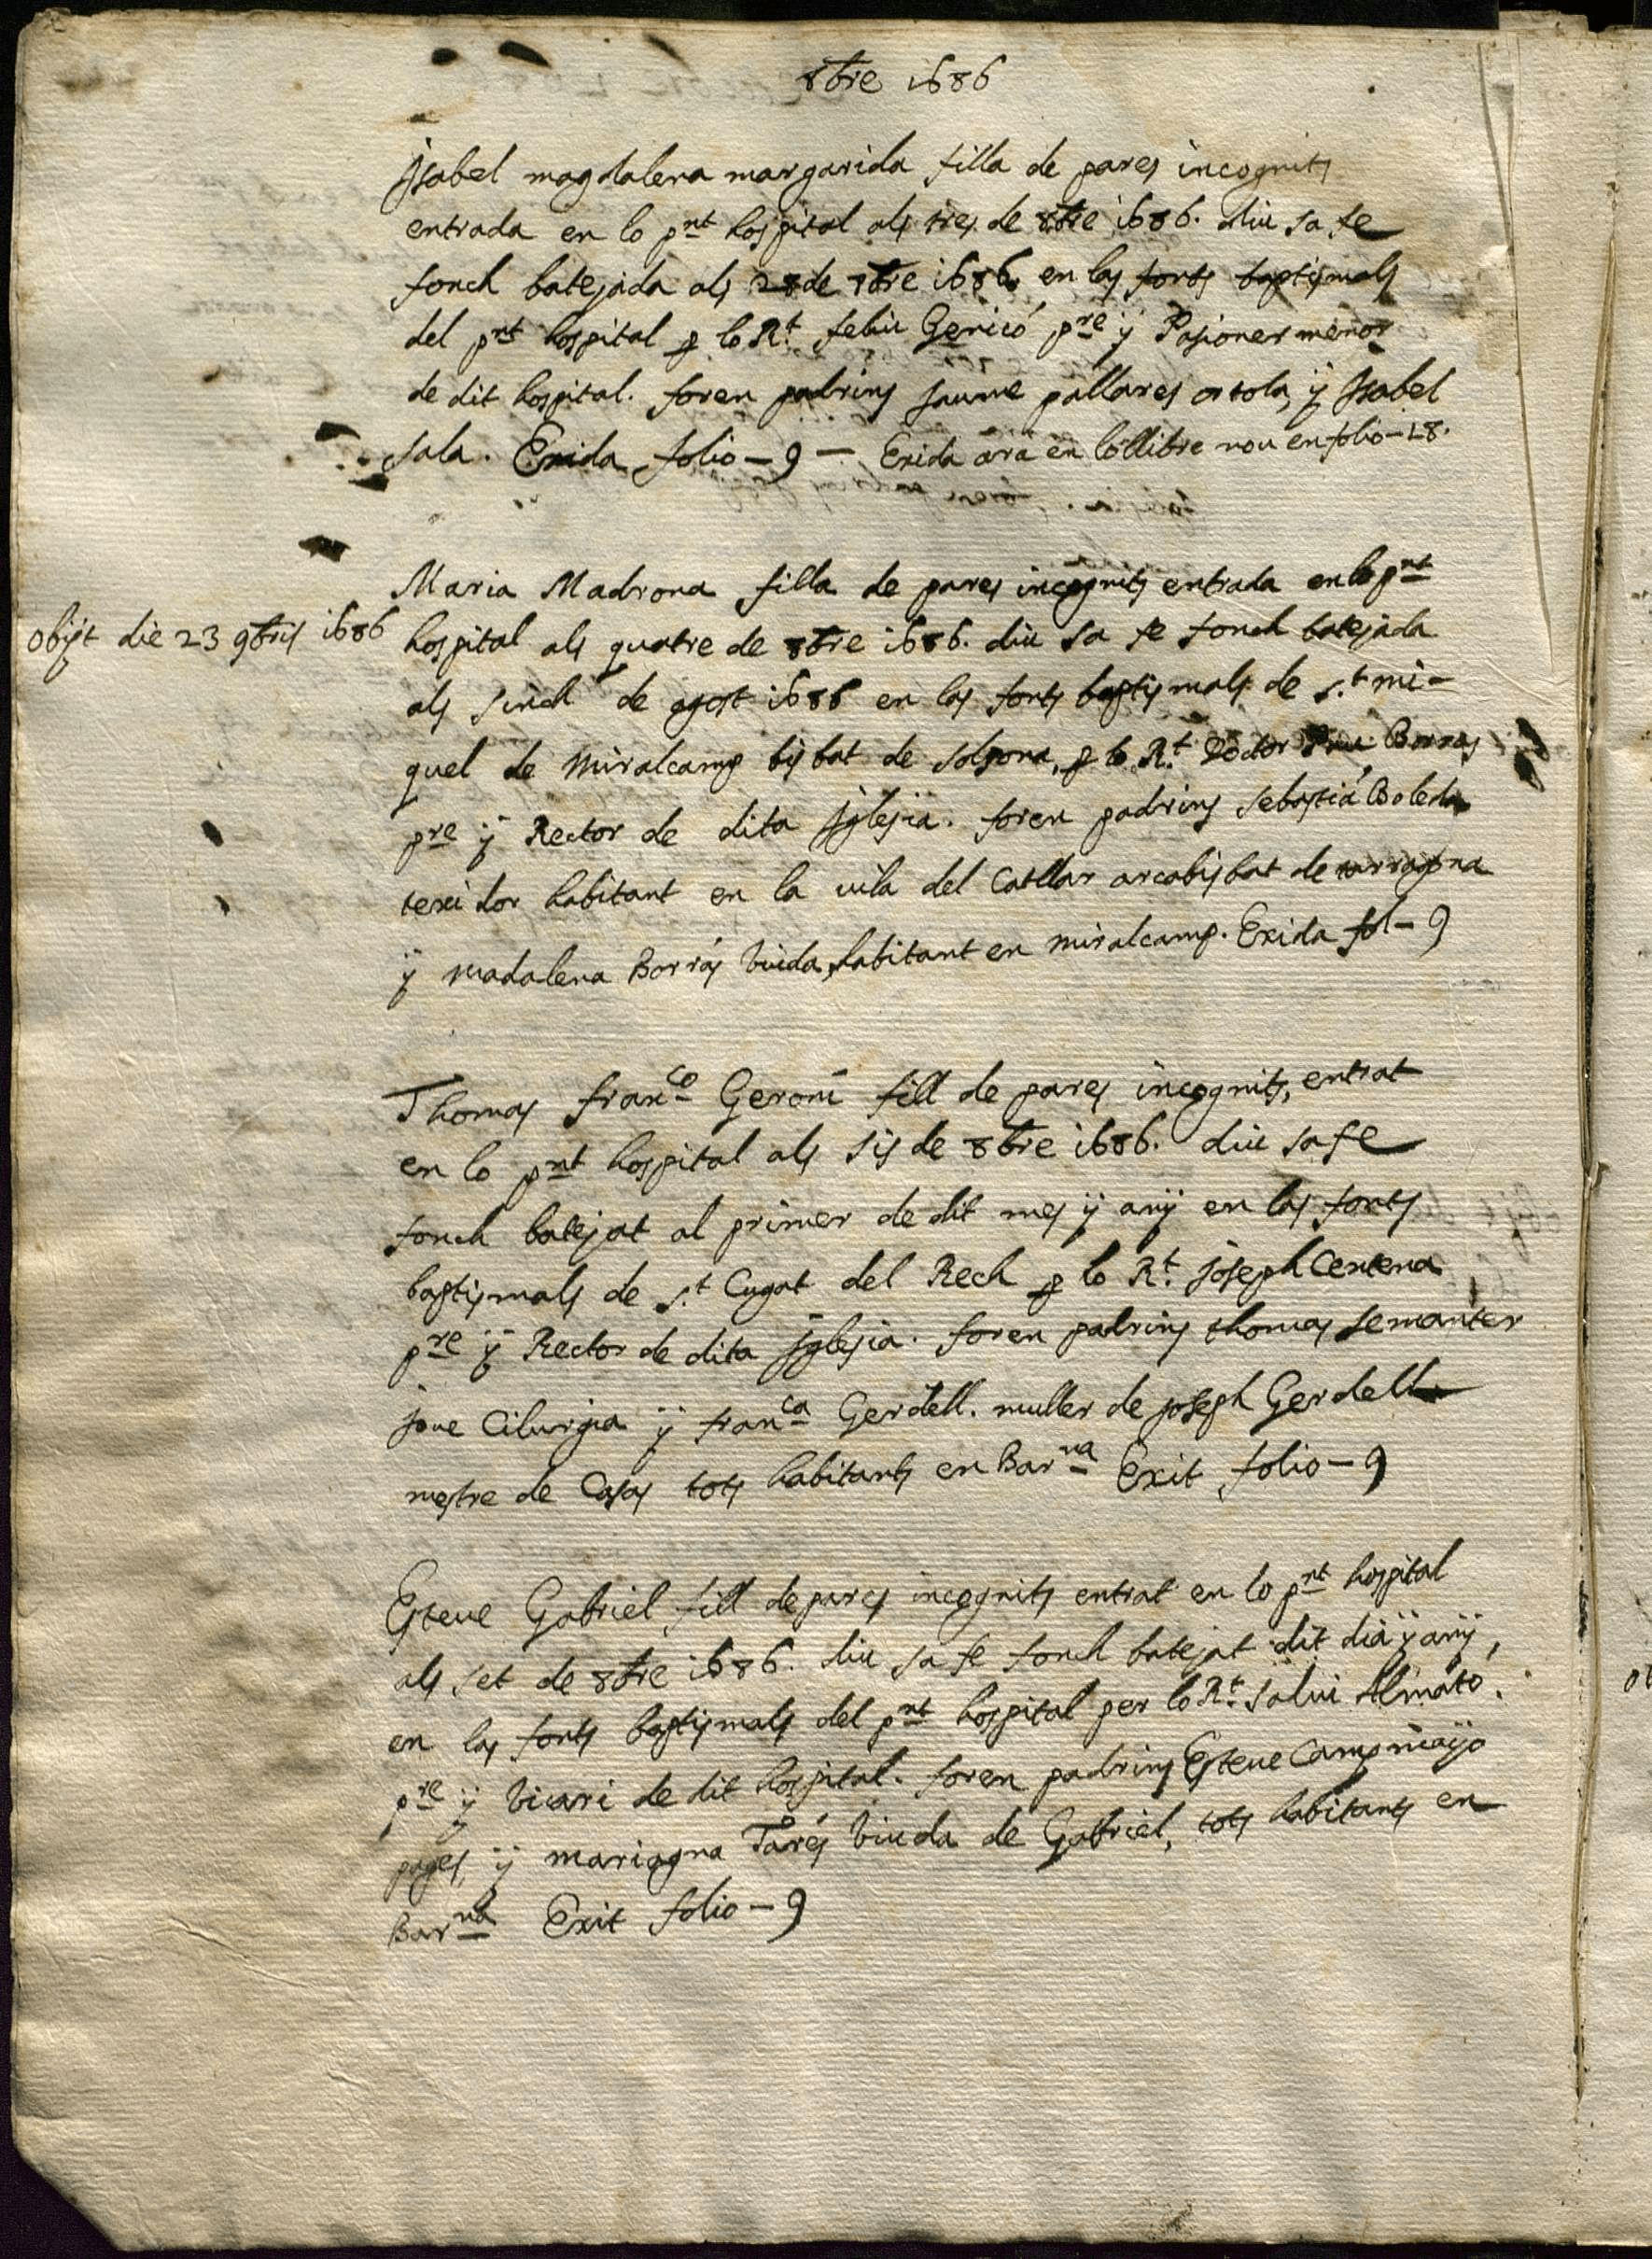 8bre 1686
Isabel magdalena margarida filla de pares incognits
entrada en lo pnt hospital als tres de 8bre 1686. diu sa fe
fonch batejada als 28 de 7bre 1686 en las fonts baptismals
del pnt hospital p lo Rt. feliu Gericó pre ÿ Pasioner menor
de dit hospital. foren padrins Jaume pallares ortola, ÿ Isabel
sala. Exida folio - 9 - Exida ara en lo llibre nou en folio - 28.
Maria Madrona filla de pares incognits entrada en lo pnt
obijt die 23 9bris 1686
hospital als quatre de 8bre 1686. diu sa fe fonch batejada
als sinch de agost 1686 en las fonts baptismals de s.t mi-
quel de Miralcamp bisbat de solsona, p lo Rt. Doctor Borras
pre ÿ Rector de dita Iglesia. foren padrins sebastiá Boleda
texidor habitant en la vila del Catllar arcabisbat de tarragona
ÿ Madalena Borrás viuda habitant en miralcamp. Exida fol - 9
Thomas franco Geroni fill de pares incognits, entrat
en lo pnt hospital als sis de 8bre 1686. diu sa fe
fonch batejat al primer de dit mes ÿ anÿ en las fonts
baptismals de s.t Cugat del Rech p lo Rt. Joseph Centena
pre ÿ Rector de dita Iglesia. foren padrins thomas semanter
jove Cilurgia ÿ franca Gerdell. muller de Joseph Gerdell
mestre de Casas tots habitants en Barna Exit folio - 9
Esteve Gabriel fill de pares incognits entrat en lo pnt hospital
als set de 8bre 1686. diu sa fe fonch batejat dit dia ÿ anÿ,
en las fonts baptismals del pnt hospital per lo Rt. salvi Almató.
pre ÿ vicari de dit hospital. foren padrins Esteve Campmaÿó
pages, ÿ mariagna Tarés viuda de Gabriel, tots habitants en
Barna Exit folio - 9